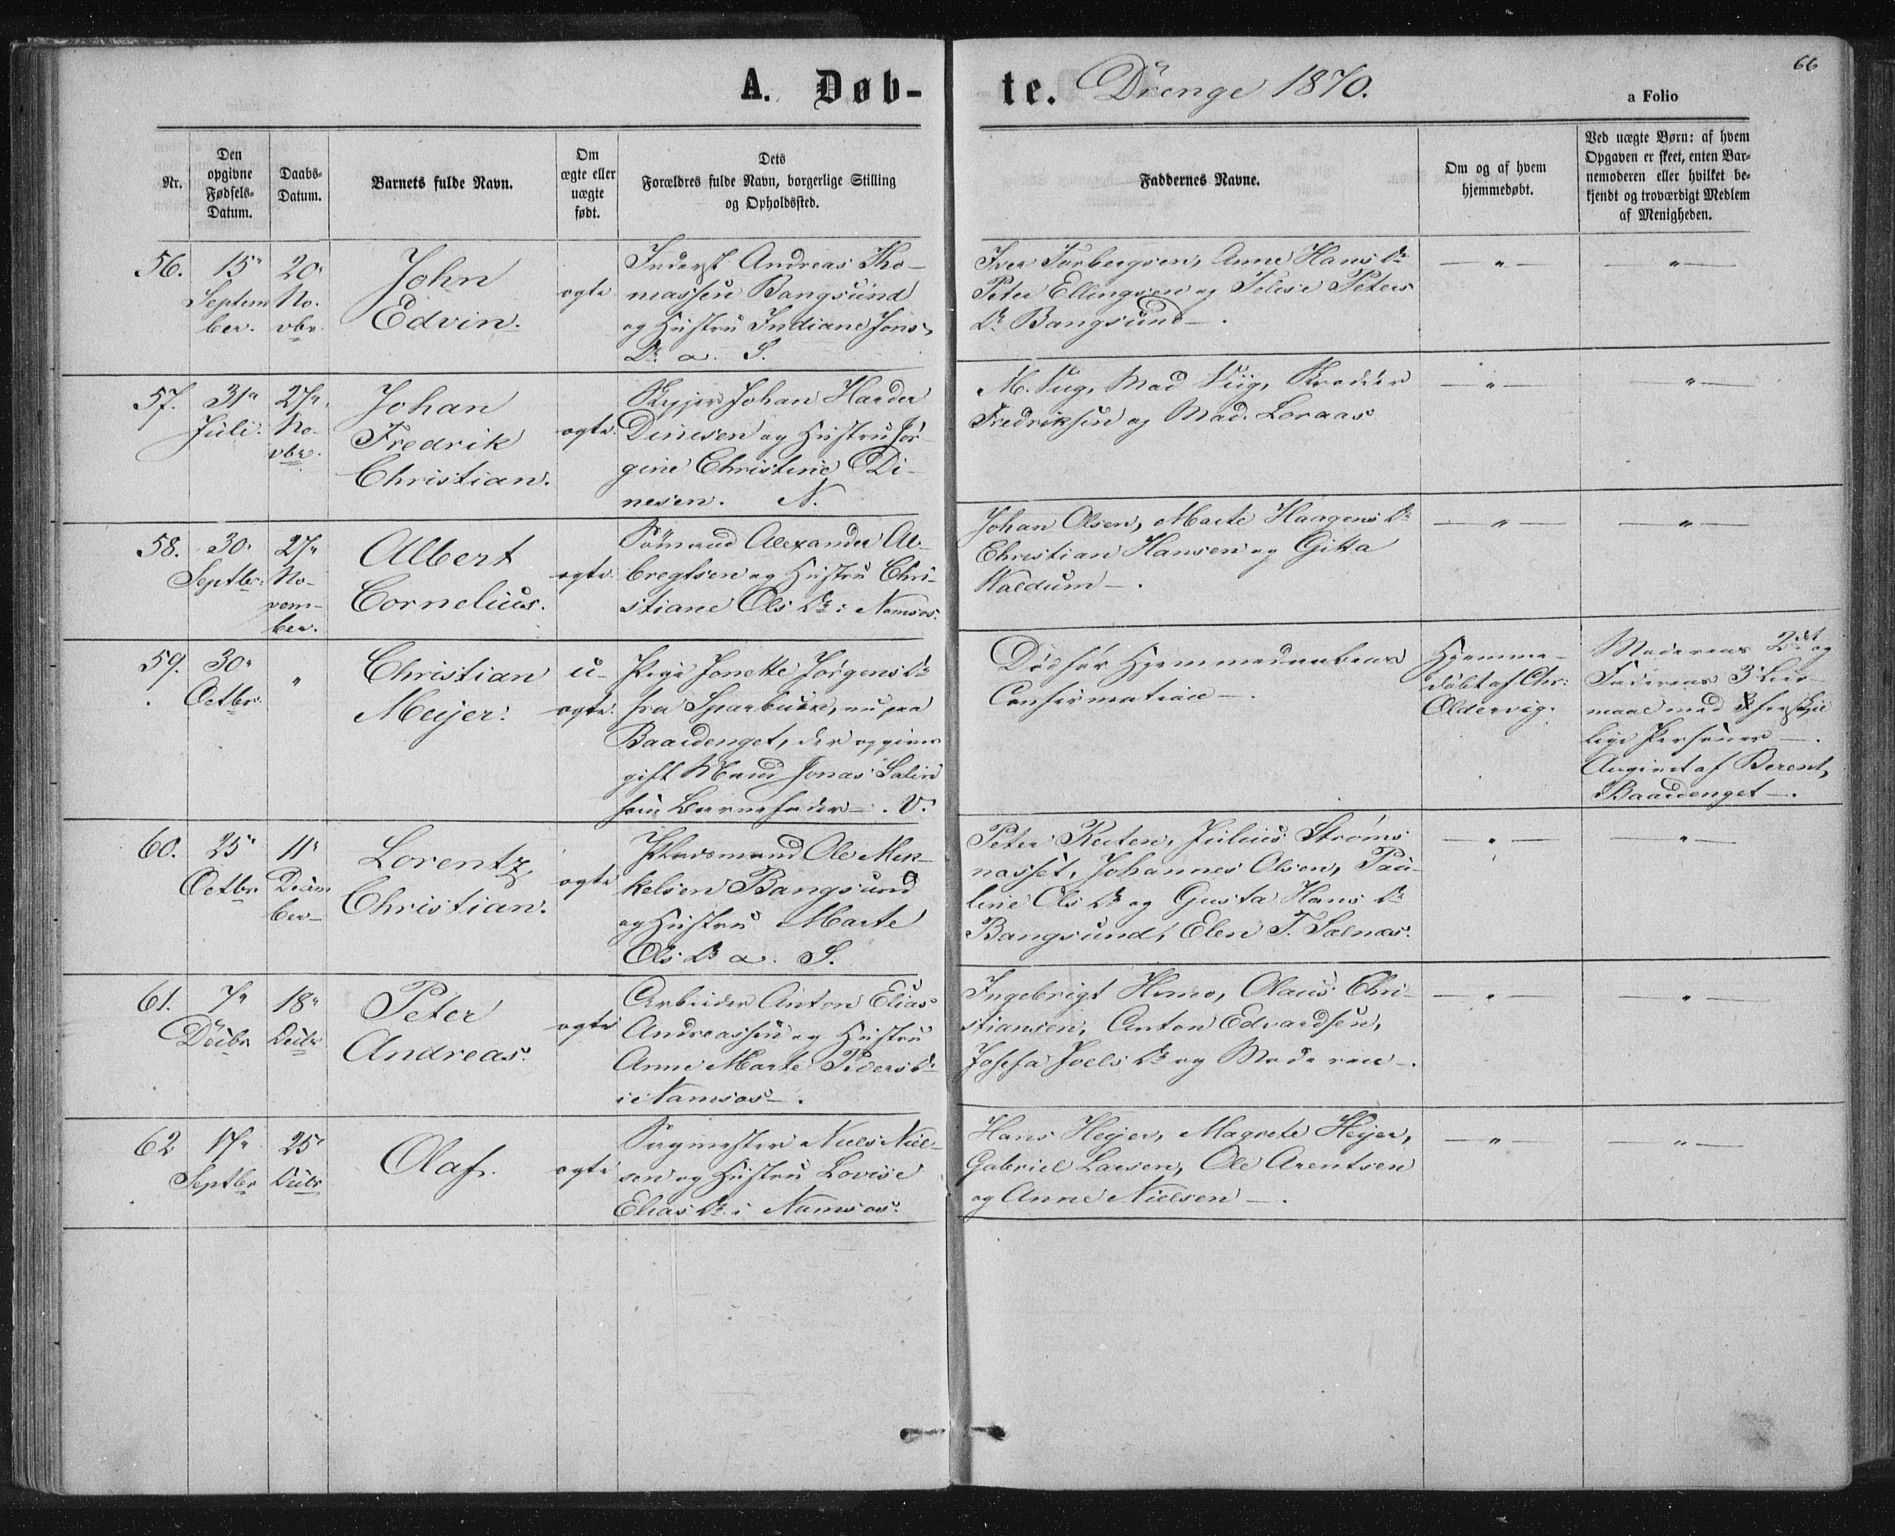 66
A. Døb-
te. Drenge 1870.
a Folio
Nr.
Den
opgivne
Fødsels-
Datum.
Daabs-
Datum.
Barnets fulde Navn.
Om
ægte eller
uægte
født.
Dets
Forældres fulde Navn, borgerlige Stilling
og Opholdssted.
Faddernes Navne.
Om og af hvem
hjemmedøbt.
Ved uægte Børn: af hvem
Opgaven er skeet, enten Bar-
nemoderen eller hvilket be-
kjendt og troværdigt Medlem
af Menigheden.
56.
15
Septem
ber.
20
No.
vbr.
John
Edvin.
ægte
Inderst Andreas Tho-
massen Bangsund
og Hustru Indiane Jons
Dr. a. S.
Iver Torbergsen, Anne Hans Dr
Peter Ellingsen og Peters
Dr. Bangsund —.
— " —
— " —
57.
31
Juli.
27
No-
vbr.
Johan
Fredrik
Christian.
ægte.
Johan Harder
Dinesen og Hustru Jør-
gine Christine Di-
nesen. N.
Fredriksen og Mad. Loraas
— " —
— " —
58.
30
Septbr.
27
No-
vem-
ber.
Albert
Cornelius.
ægte.
Sømand Alexander Al-
bregtsen og Hustru Chri-
stiane Ols Dr. i Namsos.
Johan Olsen, Marte Haagens Dr
Christian Hansen og Gitta
Waldum —.
— " —
— " —
59.
30
Octbr.
"
Christian
Meyer.
u-
ægte.
Pige Jonette Jørgens Dr
fra Sparbuen, nu paa
Baardenget, der opgiver
gift Mand Jonas
som Barnefader —. V.
Død før Hjemmedaabens
Confirmation —.
Hjemme-
døbt af Chr.
Aldervig.
Moderens 2det og
Faderens 3 Leier-
maal med forskjel
lige Personer —.
Angivet af Berent
Baardenget —.
60.
25
Octbr
11
Decem
ber —
Lorentz
Christian.
ægte
Pladsmand Ole Mik-
kelsen Bangsund
og Hustru Marte
Ols Dr a. S.
Peter Reiten, Julius Strøms
næsset, Johannes Olsen, Pau-
line Ols Dr og Gusta Hans Dr
Bangsund, Elen T. Salnæs.
— " —
— " —
61.
7
Decbr
18
Decbr
Peter
Andreas.
ægte
Arbeider Anton Elias
Andreassen og Hustru
Anne Marte Peders Dr
i Namsos —.
Ingebrigt Homo, Olaus Chri-
stiansen, Anton Edvardsen,
Josefa Joels Dr og Moderen —.
— " —
— " —
62
17
Septbr
25
Decbr
Olaf.
ægte
Sagmester Niels Niel-
sen og Hustru Lovise
Elias Dr. i Namsos.
Hans Heyer, Magrete Heyer,
Gabriel Larsen, Ole Arentsen
og Anne Nielsen —.
— " —
— " —